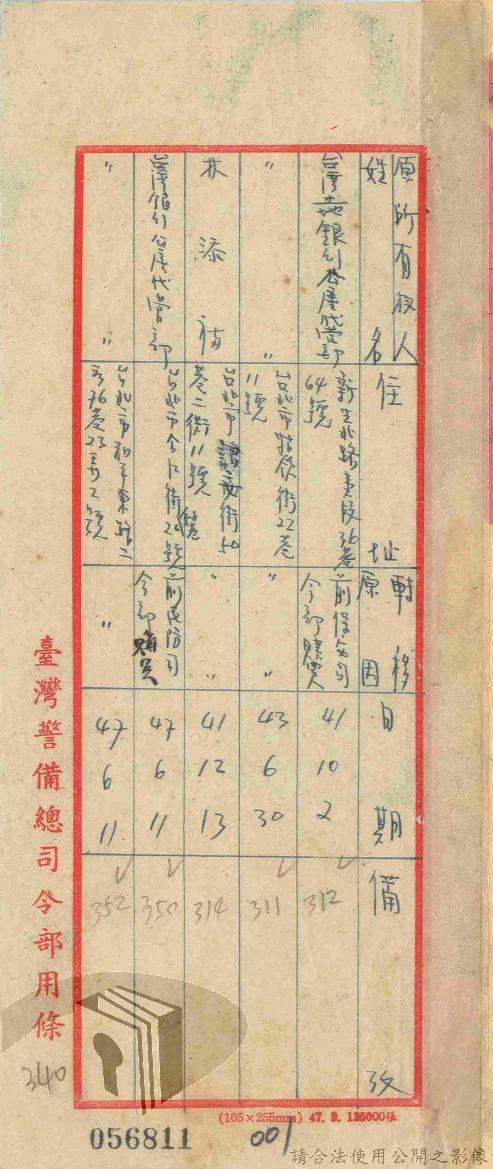 原所有权人 姓名 住址 轉移原因 日期 備攷
台灣土地銀行公產代管部 新生北路壹段36巷64號 前保安司令部購買 41 10 2 312
〃 台北市牯嶺街22巷11號 〃 43 6 30 311
林添福 台北市 街50巷二衖11號 〃 41 12 13 314
台灣銀行公產代管部 台北市 街 號 前民防司令部購買 47 6 11 350
〃 台北市和平東路二段76巷23弄2號 〃 47 6 11 352
臺灣警備總司令部用條
340
(105×255mm) 47.9.125000張
056811
001
請合法使用公開之影像